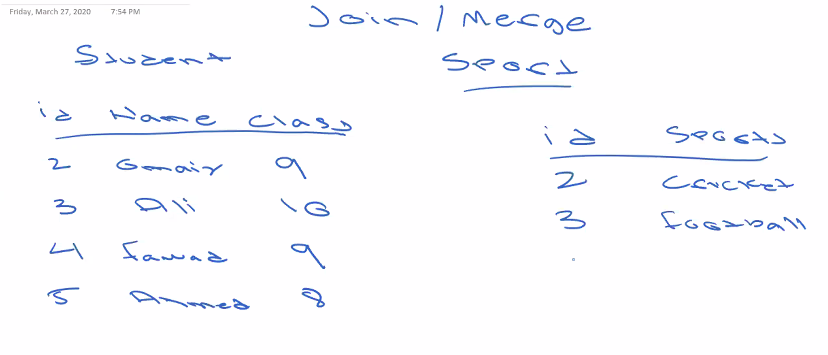 Friday, March 27, 2020 7:54 PM
Join / Merge
Student
Sport
id Name Class
2 Omair 9
3 Ali 10
4 Fawad 9
5 Ahmed 8
id Sports
2 Cricket
3 Football